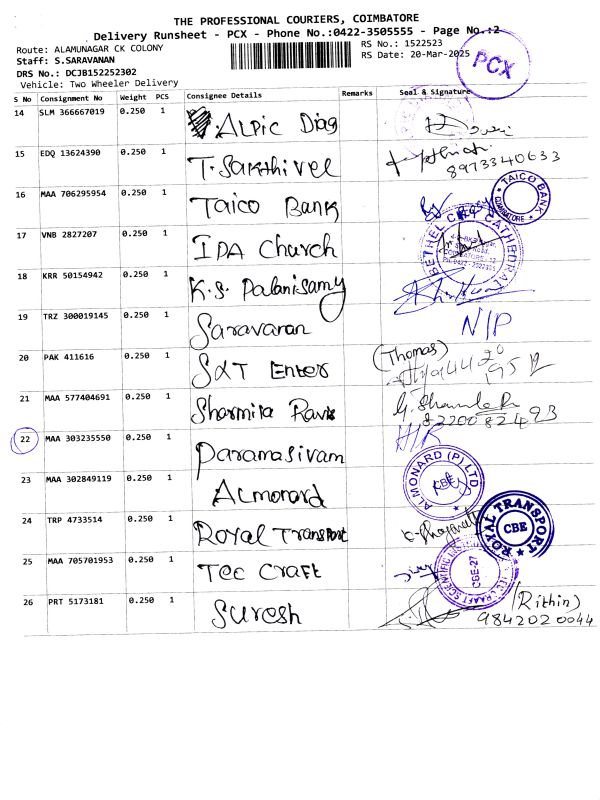 THE PROFESSIONAL COURIERS, COIMBATORE
Delivery Runsheet - PCX - Phone No.:0422-3505555 - Page No.:2
Route: ALAMUNAGAR CK COLONY
RS No.: 1522523
Staff: S.SARAVANAN
RS Date: 20-Mar-2025
DRS No.: DCJB152252302
Vehicle: Two Wheeler Delivery
PCX
S No Consignment No Weight PCS Consignee Details Remarks Seal & Signature
14 SLM 366667019 0.250 1 Alpic Diag
15 EDQ 13624390 0.250 1 T. Sakthivel 8973340633
16 MAA 706295954 0.250 1 Taico Bank TAICO BANK COIMBATORE
17 VNB 2827207 0.250 1 IDA Church BETHEL CSI CATHEDRAL
18 KRR 50154942 0.250 1 K.S. Palanisamy
19 TRZ 300019145 0.250 1 Saravanan N/P
20 PAK 411616 0.250 1 S&T Enter (Thomas)
21 MAA 577404691 0.250 1 Sharmila Ravi 8220082493
22 MAA 303235550 0.250 1 Paramasivam H/R
23 MAA 302849119 0.250 1 Almonard ALMONARD (P) LTD. CBE
24 TRP 4733514 0.250 1 Royal Transport ROYAL TRANSPORT CBE
25 MAA 705701953 0.250 1 Tec Craft CBE-27
26 PRT 5173181 0.250 1 Suresh (Rithin) 9842020044